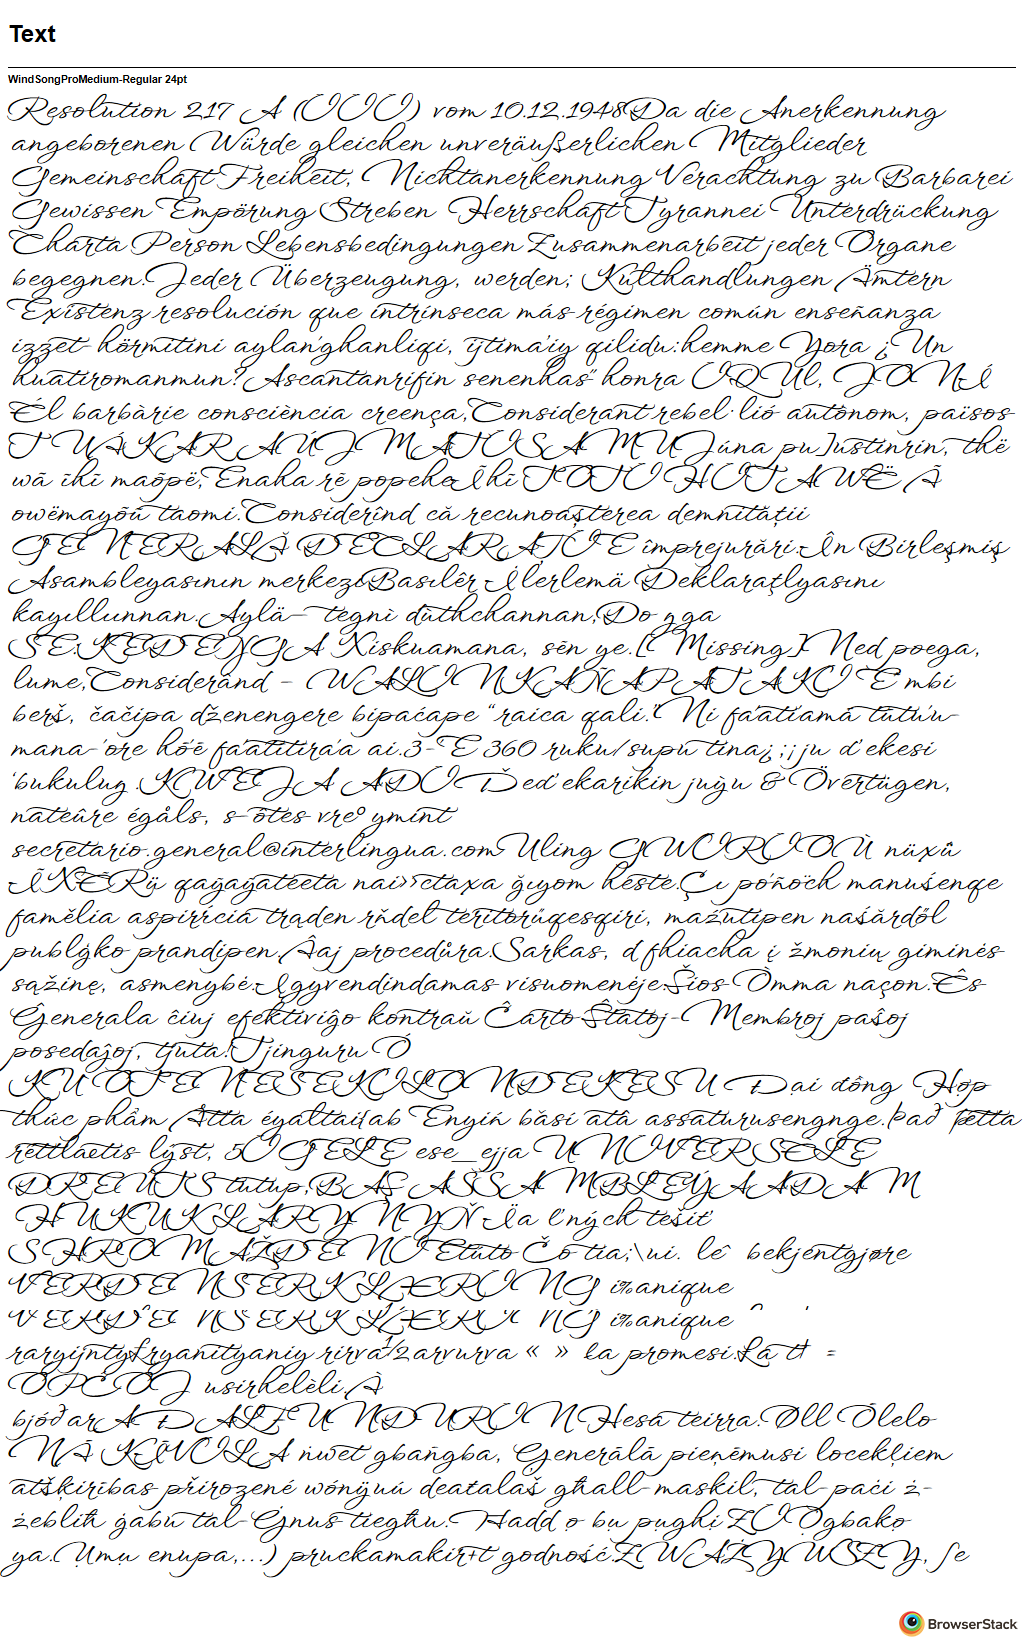 Text
WindSongProMedium-Regular 24pt
Resolution 217 A (III) vom 10.12.1948Da die Anerkennung
angeborenen Würde gleichen unveräußerlichen Mitglieder
Gemeinschaft Freiheit, Nichtanerkennung Verachtung zu Barbarei
Gewissen Empörung Streben Herrschaft Tyrannei Unterdrückung
Charta Person Lebensbedingungen Zusammenarbeit jeder Organe
begegnen.Jeder Überzeugung, werden; Kulthandlungen Ämtern
Existenz resolución que intrínseca más régimen común enseñanza
izzet-hörmitini aylan'ghanliqi, ijtima'iy qilidu:hemme Yora ¿Un
huatiromanmun?Ascantanrifin senenhas"honra IQUl, JONÍ
Él barbàrie consciència creença,Considerant rebel·lió autònom, països
T WÁKAR AÚJMATISAMU Júna pu]ustinrin, thë
wã ĩhĩ maõpë,Enaha rẽ popehe Ĩhĩ TOTIHITAWË Ã
owëmayõũ taomi.Considerînd că recunoașterea demnității
GENERALĂ DECLARAȚIE împrejurări.În Birleşmiş
Asambleyasının merkezi Basılêr İlerlemä Deklaraţlyasını
kayıllunnan.Aylä— tegnì dùthchannan,Do gga
SE.KEDENGA Niskuamana, sẽn ye.[Missing] Ned poega,
lume,Considerând – WALINKAÑAPATAKI E mbi
berš, čačipa dženengere bipaćape "raica qali."Ni fa'atíamā tūtū'u-
mana-'ore hō'ē fa'atitira'a ai.3-E 360 ruku/supu tina¿;¡ju d'ekesi
'bukulug.KWEJA ADI Ďeď ekarikin juỳu & Övertügen,
nateûre égåls, s-ôtes vre° ymint
secretario.general@interlingua.com Uling GWIRIOÙ nüxũ
ĨXERÜ qaỹaỹateeta nai››ctaxa ğıyom héste.Çı po'ño'ch manuśenqe
famělia aspirriciá trąden rňdel teritorűqesqiri, maźutipen naśărdől
publġko prandipen.Âaj procedůra.Sarkas, d fhiacha į žmonių giminės
sąžinę, asmenybė.Įgyvendindamas visuomenėje.Šios Òmma naçon.Ês
Ĝenerala ĉiuj efektiviĝo kontraŭ Ĉarto Ŝtatoj-Membroj paŝoj
posedaĵoj, tjuta!Tjinguru Ó
Đại đồng Hợp
thức phẩm Åtta éyaltai{ab Enyiń bǎsi atâ assaturusengnge.það þetta
réttlætis lýst, 5IGELE ese_ejja UNIVERSELE
DREJTS tutup,BAŞ AŠSAMBLEÝA ADAM
HUKUKLARYNYŇ Ïa ľných tešiť
SHROMÁŽDENIE tūtū Čo tia;\ui. lê bekjentgjøre
VERDENSERKLÆRING i%anique
½arvurva « » promesi.
OPĆOJ usirhelèli.À
bjóðar Hesa teirra.Øll Ōlelo
NĀ KĀVILA ǹwet gbangba, Ģenerālā pieņēmusi locekļiem
atšķirības přirozené wónÿuú deatalaś għall-maskil, tal-paċi ż-
żebliħ ġabu tal-Ġnus tiegħu.Hadd ọ bụ pụghị ZI Ọgbakọ
ya.Ụmụ enupa,…) pruckamakir+t godność.ZWAŻYWSZY, ſe
BrowserStack